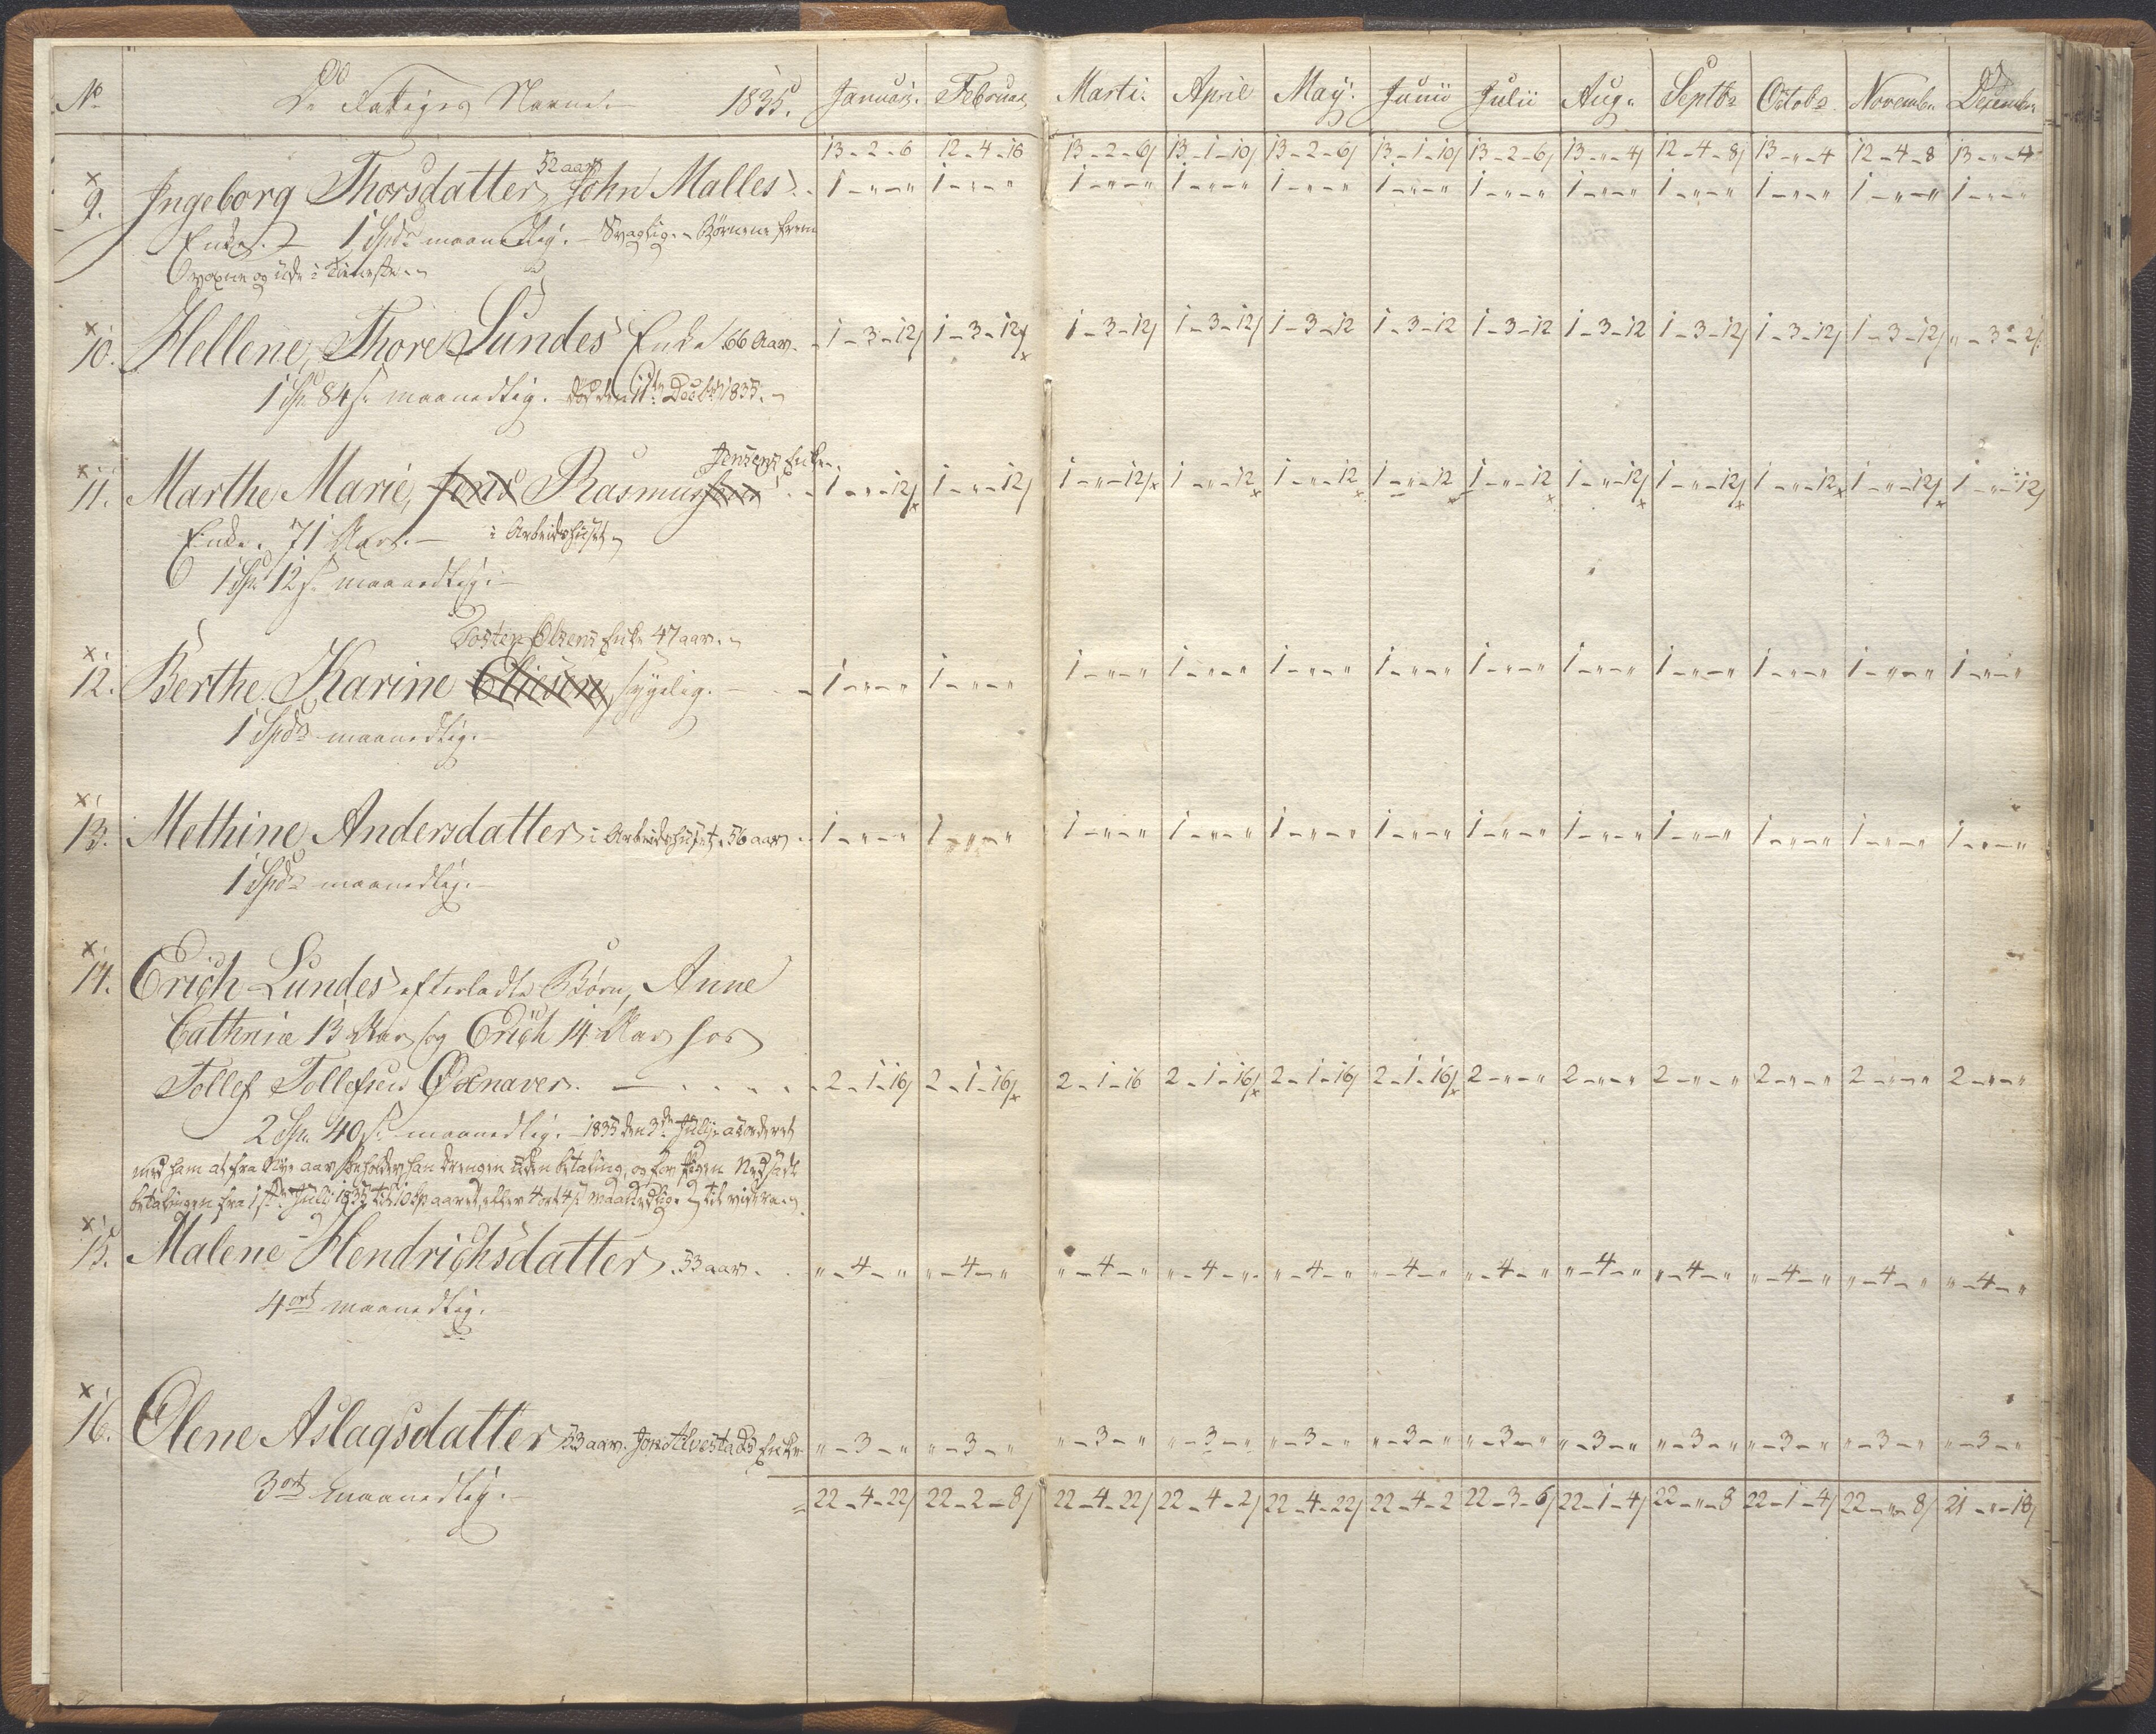 No De Fattiges Navne. 1835. Januar. Februar Marti. April May. Junii Julii Aug. Septbr Octobr. Novembr Decembr
13-2-6 12-4-16 13-2-6/ 13-1-10/ 13-2-6/ 13-1-10/ 13-2-6/ 13-"-4/ 12-4-8/ 13-"-4 12-4-8 13-"-4
52 aar
9. Ingeborg Thorsdatter, John Malles 1-"-" 1-"-" 1-"-" 1-"-" 1-"-" 1-"-" 1-"-" 1-"-" 1-"-" 1-"-" 1-"-" 1-"-"
Enke. 1 Spdr maanedlig. - Svaglig. - Børnene frem
voxne og ude i Tieneste.
10. Hellene, Thore Sundes Enke 66 Aar. 1-3-12/ 1-3-12/ 1-3-12/ 1-3-12/ 1-3-12 1-3-12 1-3-12 1-3-12 1-3-12/ 1-3-12/ 1-3-12/ "-3-2/
1 Sp 84 s. maanedlig. død den 11te Decbr 1835.
Jensens Enke
11. Marthe Marie, Jens Rasmussens 1-"-12/ 1-"-12/ 1-"-12/ 1-"-12 1-"-12 1-"-12 1-"-12 1-"-12/ 1-"-12/ 1-"-12 1-"-12/ 1-"-12/
Enke. 71 Aar. - i Arbeidshuset
1 Sp 12 s. maanedlig. -
Tosten Olsens Enke 47 aar.
12. Berthe Karine sygelig. 1-"-" 1-"-" 1-"-" 1-"-" 1-"-" 1-"-" 1-"-" 1-"-" 1-"-" 1-"-" 1-"-" 1-"-"
1 Spdr maanedlig. -
13. Methine Andersdatter i Arbeidshuset. 56 aar 1-"-" 1-"-" 1-"-" 1-"-" 1-"-" 1-"-" 1-"-" 1-"-" 1-"-" 1-"-" 1-"-" 1-"-"
1 Spdr maanedlig. -
14. Erich Lundes efterladte Børn, Anne
Cathrine 13 Aar og Erich 14 Aar hos
Tollef Tollefsen Øxnaver. 2-1-16/ 2-1-16/ 2-1-16 2-1-16/ 2-1-16/ 2-1-16/ 2-"-" 2-"-" 2-"-" 2-"-" 2-"-" 2-"-"
2 Sp. 40 s. maanedlig. - 1835 den 3de Julii accorderet
med ham at fra Nye aar beholder han drengen uden betaling, og for Pigen Nedsadt
betalingen fra 1ste Julii 1835 til 10 Sp aaret, eller 4 ort 4 s maanedlig til videre
15. Malene Hendrichsdatter. 53 aar. "-4-" "-4-" "-4-" "-4-" "-4-" "-4-" "-4-" "-4-" "-4-" "-4-" "-4-" "-4-"
4 ort maanedlig.
16. Olene Aslagsdatter 53 aar. Jon Alvestads Enke "-3-" "-3-" "-3-" "-3-" "-3-" "-3-" "-3-" "-3-" "-3-" "-3-" "-3-" "-3-"
3 ort maanedlig. = 22-4-22/ 22-2-8/ 22-4-22/ 22-4-2/ 22-4-22/ 22-4-2 22-3-6/ 22-1-4/ 22-"-8 22-1-4/ 22-"-8/ 21-"-18/